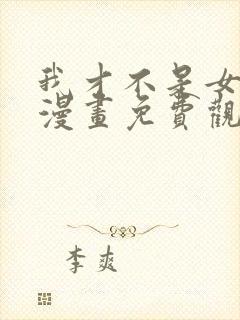 我才不是女
漫畫免費觀
李爽